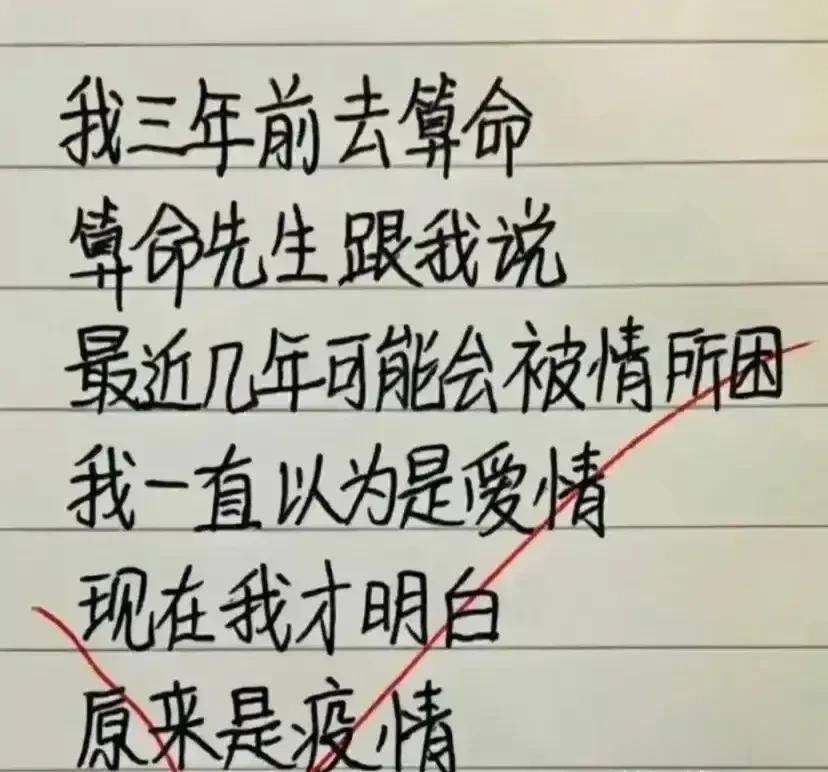 我三年前去算命
算命先生跟我说
最近几年可能会被情所困
我一直以为是爱情
现在我才明白
原来是疫情